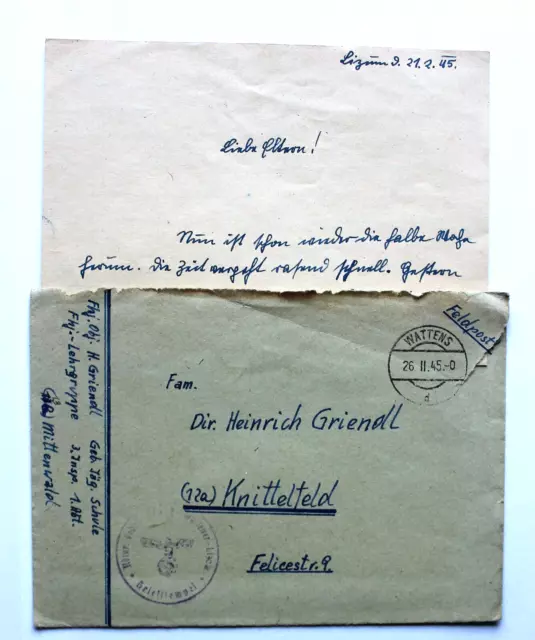 Lizum d. 21.2.45.
Liebe Eltern!
Nun ist schon wieder die halbe Woche
herum. Die Zeit vergeht rasend schnell. Gestern
Feldpost
WATTENS
26.II.45.-0
d
Fam.
Dir. Heinrich Griendl
(12a) Knittelfeld
Felicestr. 9.
Fhj. Obj. H. Griendl Geb. Jäg. Schule
Fhj.-Lehrgruppe 3. Insp. 1. Abt.
Mittenwald
Briefstempel